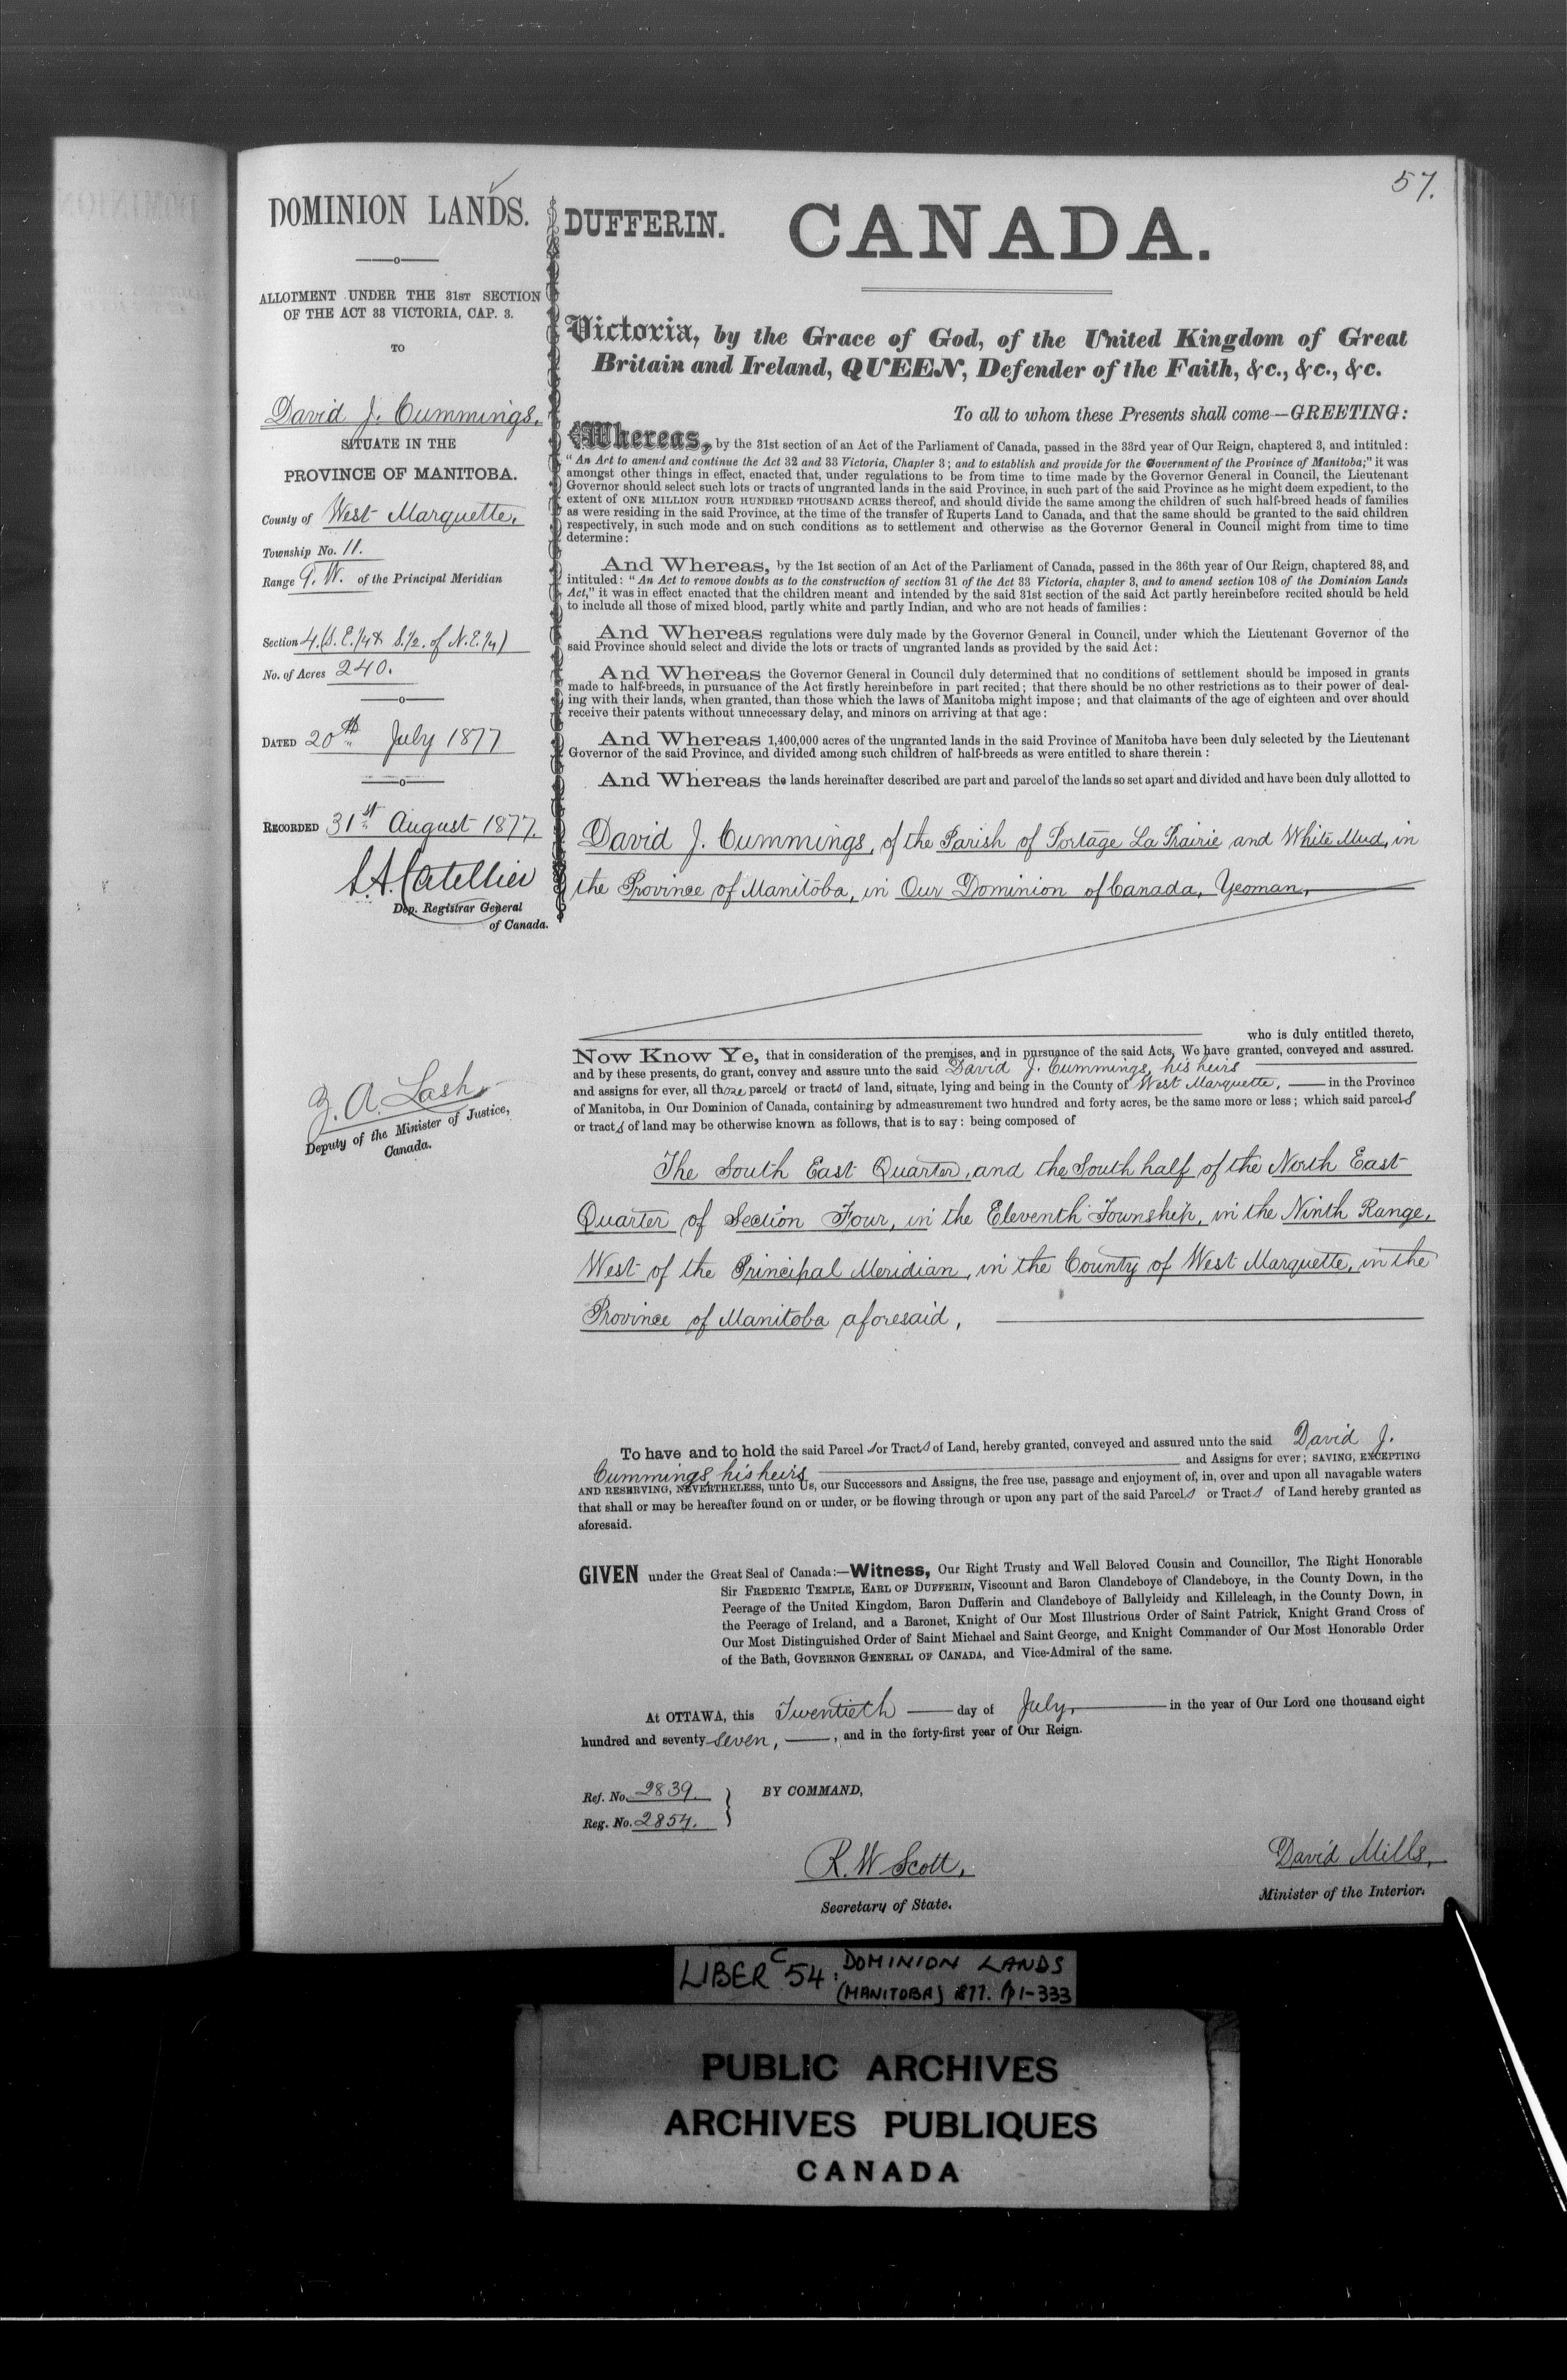 57.
DOMINION LANDS.
ALLOTMENT UNDER THE 31ST SECTION
OF THE ACT 33 VICTORIA, CAP. 3.
TO
David J. Cummings,
SITUATE IN THE
PROVINCE OF MANITOBA.
County of West Marquette,
Township No. 11.
Range 9. W. of the Principal Meridian
Section 4. (S. E. 1/4 & S. 1/2. of N. E. 1/4)
No. of Acres 240.
DATED 20th July 1877
RECORDED 31st August 1877.
L. A. Catellier
Dep. Registrar General
of Canada.
Z. A. Lash
Deputy of the Minister of Justice,
Canada.
DUFFERIN. CANADA.
Victoria, by the Grace of God, of the United Kingdom of Great
Britain and Ireland, QUEEN, Defender of the Faith, &c., &c., &c.
To all to whom these Presents shall come—GREETING:
Whereas, by the 31st section of an Act of the Parliament of Canada, passed in the 33rd year of Our Reign, chaptered 3, and intituled:
"An Act to amend and continue the Act 32 and 33 Victoria, Chapter 3; and to establish and provide for the Government of the Province of Manitoba;" it was
amongst other things in effect, enacted that, under regulations to be from time to time made by the Governor General in Council, the Lieutenant
Governor should select such lots or tracts of ungranted lands in the said Province, in such part of the said Province as he might deem expedient, to the
extent of ONE MILLION FOUR HUNDRED THOUSAND ACRES thereof, and should divide the same among the children of such half-breed heads of families
as were residing in the said Province, at the time of the transfer of Ruperts Land to Canada, and that the same should be granted to the said children
respectively, in such mode and on such conditions as to settlement and otherwise as the Governor General in Council might from time to time
determine:
And Whereas, by the 1st section of an Act of the Parliament of Canada, passed in the 36th year of Our Reign, chaptered 38, and
intituled: "An Act to remove doubts as to the construction of section 31 of the Act 33 Victoria, chapter 3, and to amend section 108 of the Dominion Lands
Act," it was in effect enacted that the children meant and intended by the said 31st section of the said Act partly hereinbefore recited should be held
to include all those of mixed blood, partly white and partly Indian, and who are not heads of families:
And Whereas regulations were duly made by the Governor General in Council, under which the Lieutenant Governor of the
said Province should select and divide the lots or tracts of ungranted lands as provided by the said Act:
And Whereas the Governor General in Council duly determined that no conditions of settlement should be imposed in grants
made to half-breeds, in pursuance of the Act firstly hereinbefore in part recited; that there should be no other restrictions as to their power of deal-
ing with their lands, when granted, than those which the laws of Manitoba might impose; and that claimants of the age of eighteen and over should
receive their patents without unnecessary delay, and minors on arriving at that age:
And Whereas 1,400,000 acres of the ungranted lands in the said Province of Manitoba have been duly selected by the Lieutenant
Governor of the said Province, and divided among such children of half-breeds as were entitled to share therein:
And Whereas the lands hereinafter described are part and parcel of the lands so set apart and divided and have been duly allotted to
David J. Cummings, of the Parish of Portage La Prairie and White Mud, in
the Province of Manitoba, in Our Dominion of Canada, Yeoman,
who is duly entitled thereto,
Now Know Ye, that in consideration of the premises, and in pursuance of the said Acts, We have granted, conveyed and assured.
and by these presents, do grant, convey and assure unto the said David J. Cummings, his heirs
and assigns for ever, all those parcels or tracts of land, situate, lying and being in the County of West Marquette, in the Province
of Manitoba, in Our Dominion of Canada, containing by admeasurement two hundred and forty acres, be the same more or less; which said parcels
or tracts of land may be otherwise known as follows, that is to say: being composed of
The South East Quarter, and the South half of the North East
Quarter of Section Four, in the Eleventh Township, in the Ninth Range,
West of the Principal Meridian, in the County of West Marquette, in the
Province of Manitoba aforesaid,
To have and to hold the said Parcel s or Tracts of Land, hereby granted, conveyed and assured unto the said David J.
Cummings, his heirs and Assigns for ever; SAVING, EXCEPTING
AND RESERVING, NEVERTHELESS, unto Us, our Successors and Assigns, the free use, passage and enjoyment of, in, over and upon all navagable waters
that shall or may be hereafter found on or under, or be flowing through or upon any part of the said Parcels or Tracts of Land hereby granted as
aforesaid.
GIVEN under the Great Seal of Canada:—Witness, Our Right Trusty and Well Beloved Cousin and Councillor, The Right Honorable
Sir FREDERIC TEMPLE, EARL OF DUFFERIN, Viscount and Baron Clandeboye of Clandeboye, in the County Down, in the
Peerage of the United Kingdom, Baron Dufferin and Clandeboye of Ballyleidy and Killeleagh, in the County Down, in
the Peerage of Ireland, and a Baronet, Knight of Our Most Illustrious Order of Saint Patrick, Knight Grand Cross of
Our Most Distinguished Order of Saint Michael and Saint George, and Knight Commander of Our Most Honorable Order
of the Bath, GOVERNOR GENERAL OF CANADA, and Vice-Admiral of the same.
At OTTAWA, this Twentieth day of July, in the year of Our Lord one thousand eight
hundred and seventy seven, , and in the forty-first year of Our Reign.
Ref. No. 2839.
Reg. No. 2854.
BY COMMAND,
R. W Scott,
Secretary of State.
David Mills,
Minister of the Interior.
LIBER C 54: DOMINION LANDS
(MANITOBA) 1877. pp 1-333
PUBLIC ARCHIVES
ARCHIVES PUBLIQUES
CANADA